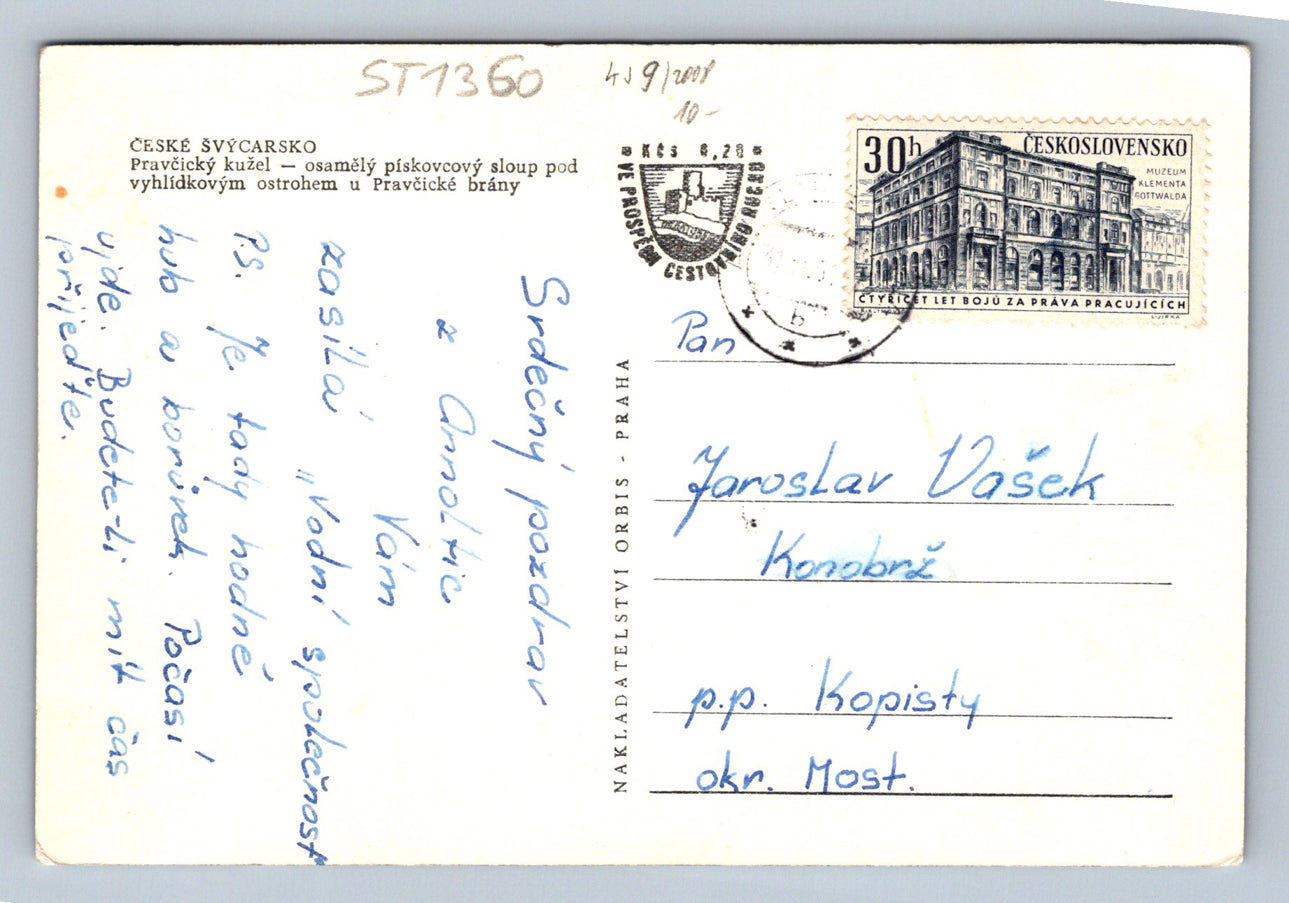 ST1360
10-
ČESKÉ ŠVÝCARSKO
Pravčický kužel — osamělý pískovcový sloup pod
vyhlídkovým ostrohem u Pravčické brány
Kčs 0,20
VE PROSPĚCH CESTOVNÍHO RUCHU
30h
ČESKOSLOVENSKO
MUZEUM
KLEMENTA
GOTTWALDA
ČTYŘICET LET BOJŮ ZA PRÁVA PRACUJÍCÍCH
b
Srdečný pozdrav
z Arnoltic
Vám
zasílá „Vodní společnost
Ps. Je tady hodně
hub a borůvek. Počasí
ujde. Budete-li mít čas
přijeďte.
NAKLADATELSTVÍ ORBIS - PRAHA
Pan
Jaroslav Vašek
Konobrž
p.p. Kopisty
okr. Most.